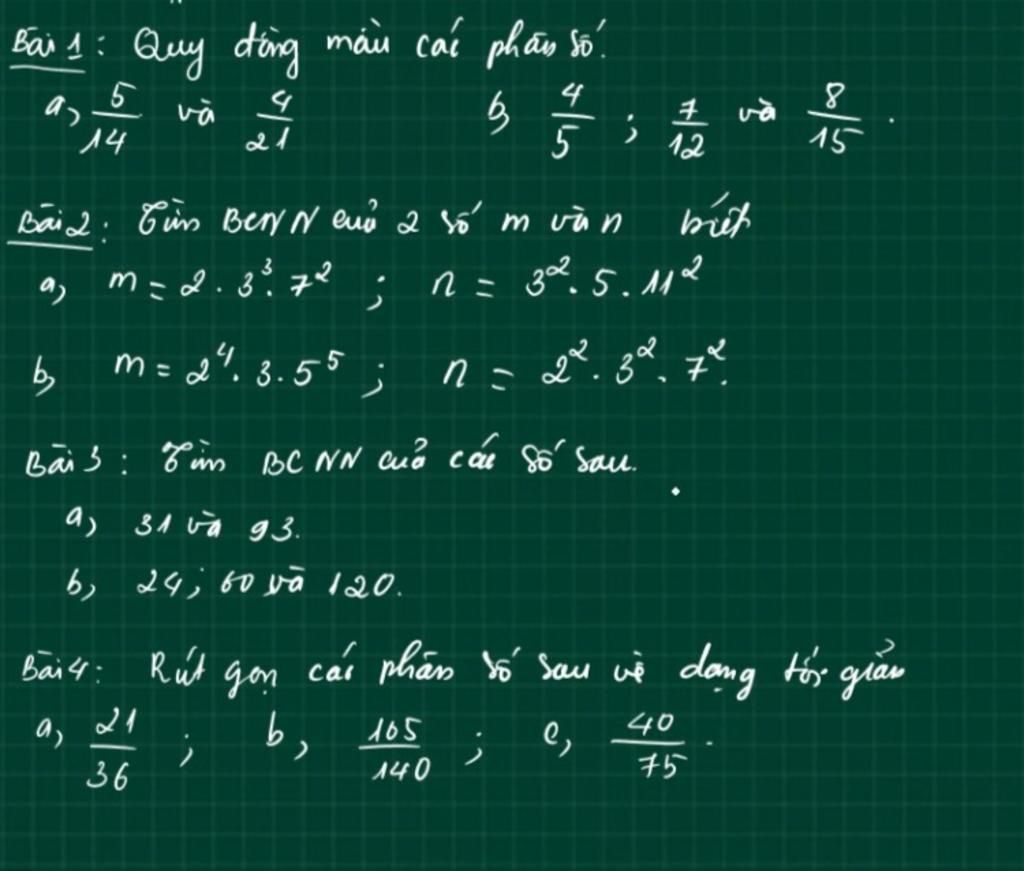 Bài 1: Quy đồng mẫu các phân số.
a, 5/14 và 4/21 b, 4/5 ; 7/12 và 8/15 .
Bài 2: Tìm BCNN của 2 số m và n biết
a, m = 2 . 3³. 7² ; n = 3². 5 . 11²
b, m = 2⁴. 3 . 5⁵ ; n = 2² . 3² . 7².
Bài 3 : Tìm BCNN của các số sau.
a, 31 và 93.
b, 24 ; 60 và 120.
Bài 4: Rút gọn các phân số sau về dạng tối giản
a, 21/36 ; b, 105/140 ; c, 40/75 .